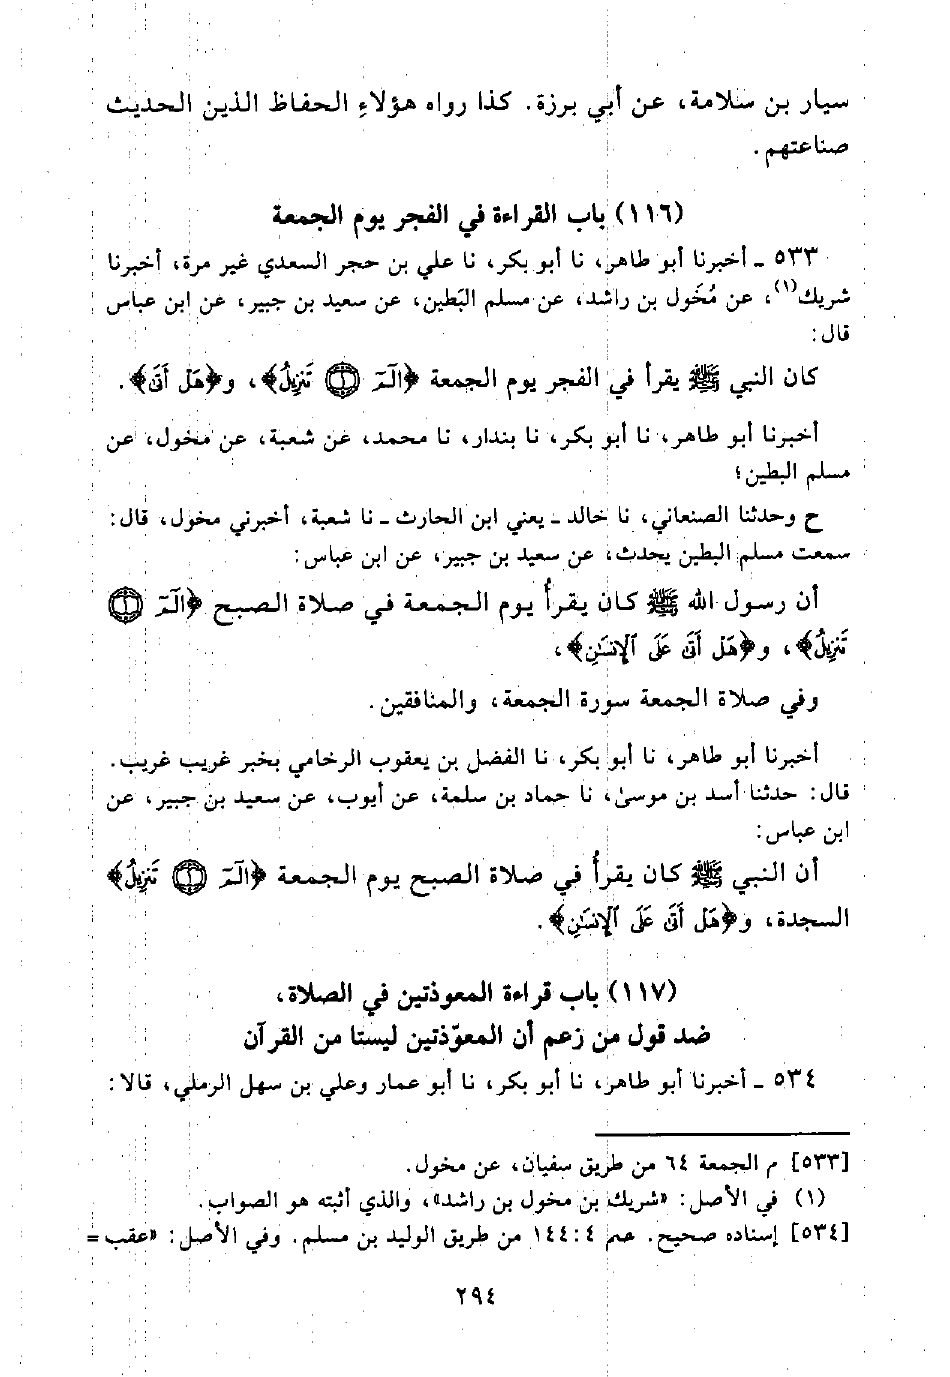 سيار بن سلامة، عن أبي برزة. كذا رواه هؤلاء الحفاظ الذين الحديث
صناعتهم.
(١١٦) باب القراءة في الفجر يوم الجمعة
٥٣٣ ـ أخبرنا أبو طاهر، نا أبو بكر، نا علي بن حجر السعدي غير مرة، أخبرنا
شريك(١)، عن مُخَول بن راشد، عن مسلم البَطين، عن سعيد بن جبير، عن ابن عباس
قال:
كان النبي ﷺ يقرأ في الفجر يوم الجمعة ﴿الٓمٓ ۝١ تَنزِيلُ﴾، و﴿هَلْ أَتَىٰ﴾.
أخبرنا أبو طاهر، نا أبو بكر، نا بندار، نا محمد، عن شعبة، عن مخول، عن
مسلم البطين؛
ح وحدثنا الصنعاني، نا خالد ـ يعني ابن الحارث ـ نا شعبة، أخبرني مخول، قال:
سمعت مسلم البطين يحدث، عن سعيد بن جبير، عن ابن عباس:
أن رسول الله ﷺ كان يقرأُ يوم الجمعة في صلاة الصبح ﴿الٓمٓ ۝١
تَنزِيلُ﴾، و﴿هَلْ أَتَىٰ عَلَى ٱلْإِنسَٰنِ﴾،
وفي صلاة الجمعة سورة الجمعة، والمنافقين.
أخبرنا أبو طاهر، نا أبو بكر، نا الفضل بن يعقوب الرخامي بخبر غريب غريب.
قال: حدثنا أسد بن موسىٰ، نا حماد بن سلمة، عن أيوب، عن سعيد بن جبير، عن
ابن عباس:
أن النبي ﷺ كان يقرأُ في صلاة الصبح يوم الجمعة ﴿الٓمٓ ۝١ تَنزِيلُ﴾
السجدة، و﴿هَلْ أَتَىٰ عَلَى ٱلْإِنسَٰنِ﴾.
(١١٧) باب قراءة المعوذتين في الصلاة،
ضد قول من زعم أن المعوّذتين ليستا من القرآن
٥٣٤ ـ أخبرنا أبو طاهر، نا أبو بكر، نا أبو عمار وعلي بن سهل الرملي، قالا:
[٥٣٣] م الجمعة ٦٤ من طريق سفيان، عن مخول.
(١) في الأصل: «شريك بن مخول بن راشد»، والذي أثبته هو الصواب.
[٥٣٤] إسناده صحيح. حم ٤:١٤٤ من طريق الوليد بن مسلم. وفي الأصل: «عقب =
٢٩٤